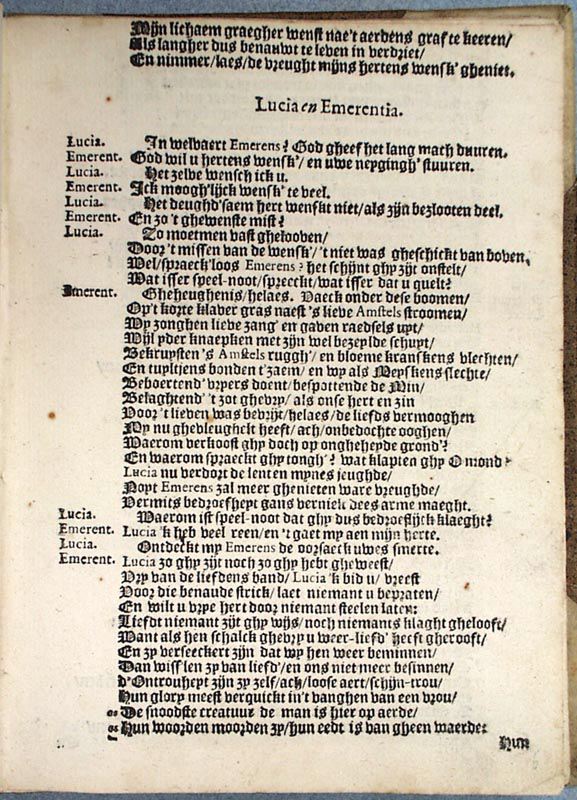 Mijn lichaem graegher wenst nae't aerdens graf te keeren/
Als langher dus benauwt te leven in verdriet/
En nimmer/laes/de vreught mijns hertens wensk' gheniet.
Lucia en Emerentia.
Lucia. In welvaert Emerens? God gheef het lang mach duuren.
Emerent. God wil u hertens wensk'/ en uwe neygingh' stuuren.
Lucia. Het zelve wensch ick u.
Emerent. Ick moogh'lijck wensk' te veel.
Lucia. Het deughd'saem hert wenskt niet/als zijn bezlooten deel.
Emerent. En zo 't ghewenste mist?
Lucia. Zo moetmen vast ghelooven/
Door 't missen van de wensk'/'t niet was gheschickt van boven.
Wel/spraeck'loos Emerens? het schijnt ghy zijt onstelt/
Wat isser speel-noot/spreeckt/wat isser dat u quelt?
Emerent. Gheheughenis/helaes. Vaeck onder dese boomen/
Op't korte klaver gras naest 's lieve Amstels stroomen/
Wy zonghen lieve zang' en gaven raedsels uyt/
Wijl yder knaepken met zijn wel bezeylde schuyt/
Bekruysten 's Amstels ruggh'/ en bloeme kranskens vlechten/
En tuyltjens bonden t'zaem/ en wy als Meyskens slechte/
Beboertend' vryers doent/bespottende de Min/
Belaghtend' 't zot ghevry/ als onse hert en zin
Voor 't lieven was bevrijt/helaes/de liefds vermooghen
My nu ghevleughelt heeft/ach/onbedochte ooghen/
Waerom verkoost ghy doch op ongheheyde grond'?
En waerom spraeckt ghy tongh'? wat klapten ghy O mond?
Lucia nu verdort de lenten mynes jeughde/
Noyt Emerens zal meer ghenieten ware vreughde/
Vermits bedroefheyt gans vernielt dees arme maeght.
Lucia. Waerom ist speel-noot dat ghy dus bedroeflijck klaeght?
Emerent. Lucia 'k heb veel reen/en 't gaet my aen mijn herte.
Lucia. Ontdeckt my Emerens de oorsaeck uwes smerte.
Emerent. Lucia zo ghy zijt noch zo ghy hebt gheweest/
Vry van de liefdens band/ Lucia 'k bid u/ vreest
Voor die benaude strick/ laet niemant u bepraten/
En wilt u vrye hert door niemant steelen laten:
Liefdt niemant zijt ghy wijs/ noch niemants klaght ghelooft/
Want als hen schalck ghevry u weer-liefd' heeft gherooft/
En zy verseeckert zijn dat wy hen weer beminnen/
Dan wiss'len zy van liefd'/ en ons niet meer besinnen/
d'Ontrouheyt zijn zy zelf/ach/loose aert/schijn-trou/
Hun glory meest verquickt in't vanghen van een vrou/
De snoodste creatuur de man is hier op aerde/
Hun woorden moorden zy/hun eedt is van gheen waerde:
Hun